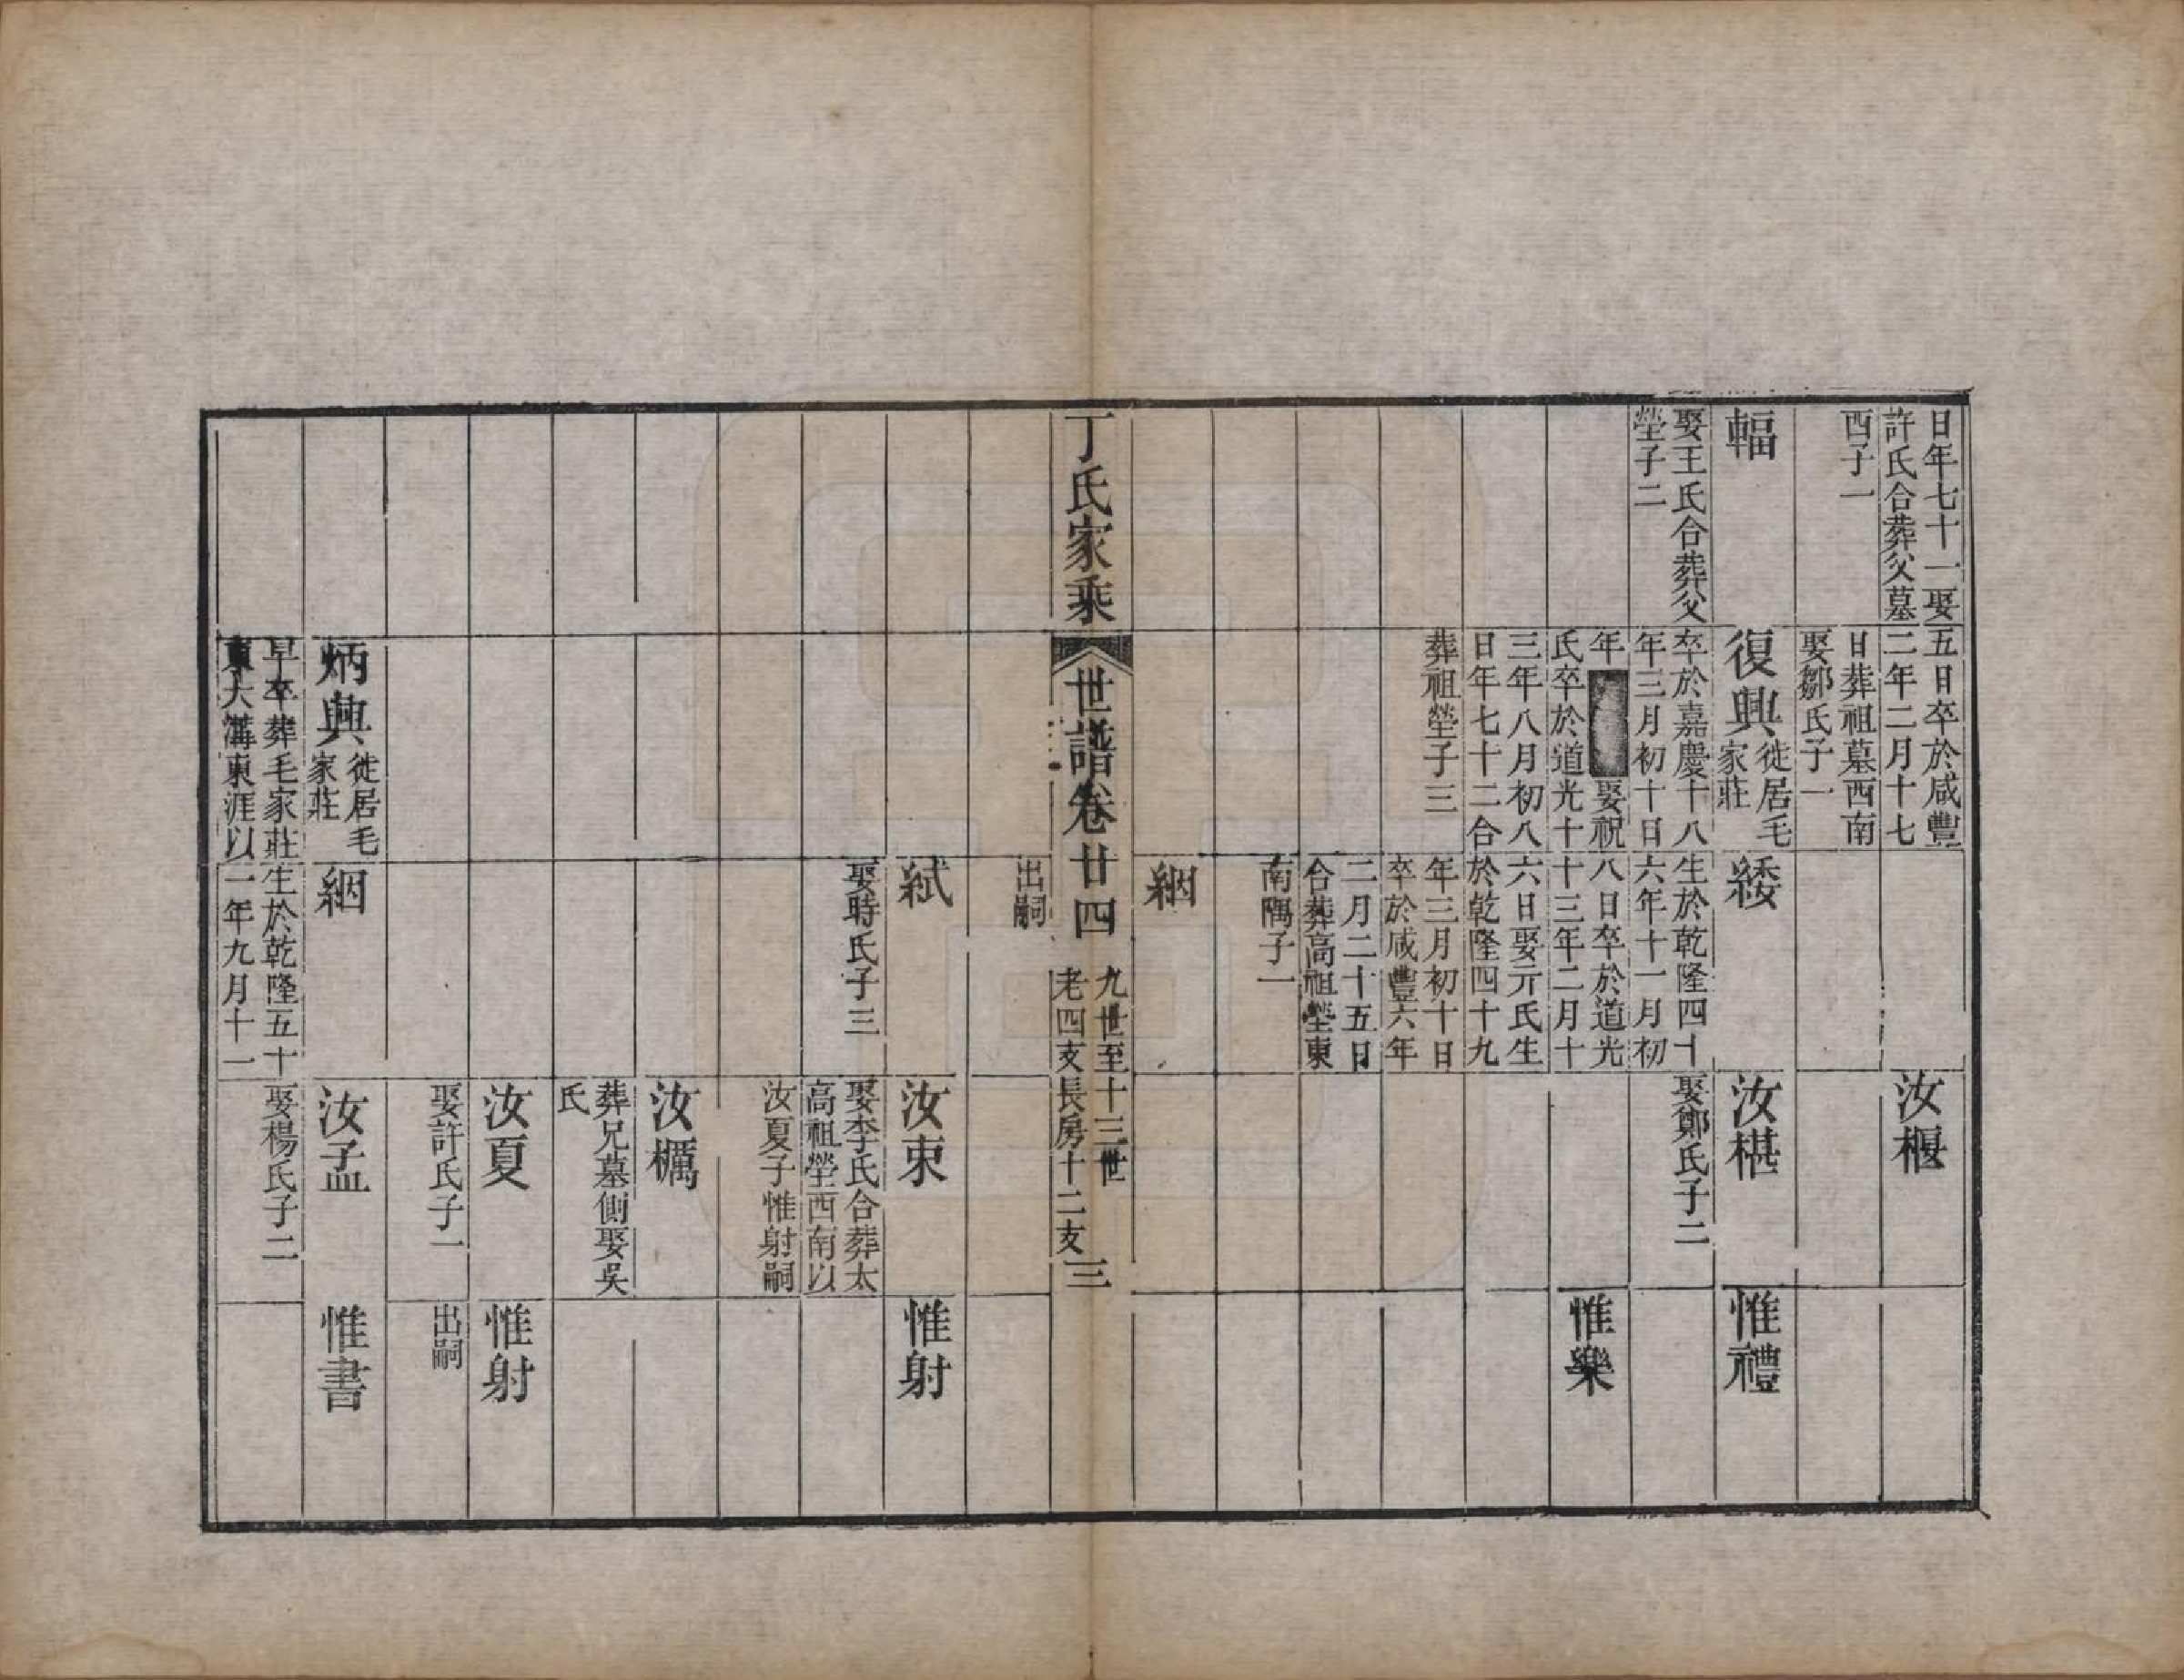 日年七十一娶
許氏合葬父墓
西子一
輻
娶王氏合葬父
塋子二
五日卒於咸豐
二年二月十七
日葬祖墓西南
娶鄒氏子一
復興
徙居毛
家莊
卒於嘉慶十八
年三月初十日
年
娶祝
氏卒於道光十
三年八月初八
日年七十二合
葬祖塋子三
緌
生於乾隆四十
六年十一月初
八日卒於道光
十三年二月十
六日娶亓氏生
於乾隆四十九
年三月初十日
卒於咸豐六年
二月二十五日
合葬高祖塋東
南隅子一
絪
汝椻
汝椹
娶鄭氏子二
惟禮
惟樂
丁氏家乘
世譜卷廿四
九世至十三世
老四支長房十二支
三
炳興
徙居毛
家莊
早卒葬毛家莊
東大溝東涯以
出嗣
娶時氏子三
絪
生於乾隆五十
二年九月十一
汝束
娶李氏合葬太
高祖塋西南以
汝夏子惟射嗣
汝櫔
葬兄墓側娶吳
氏
汝夏
娶許氏子一
汝孟
娶楊氏子二
惟射
惟射
出嗣
惟書